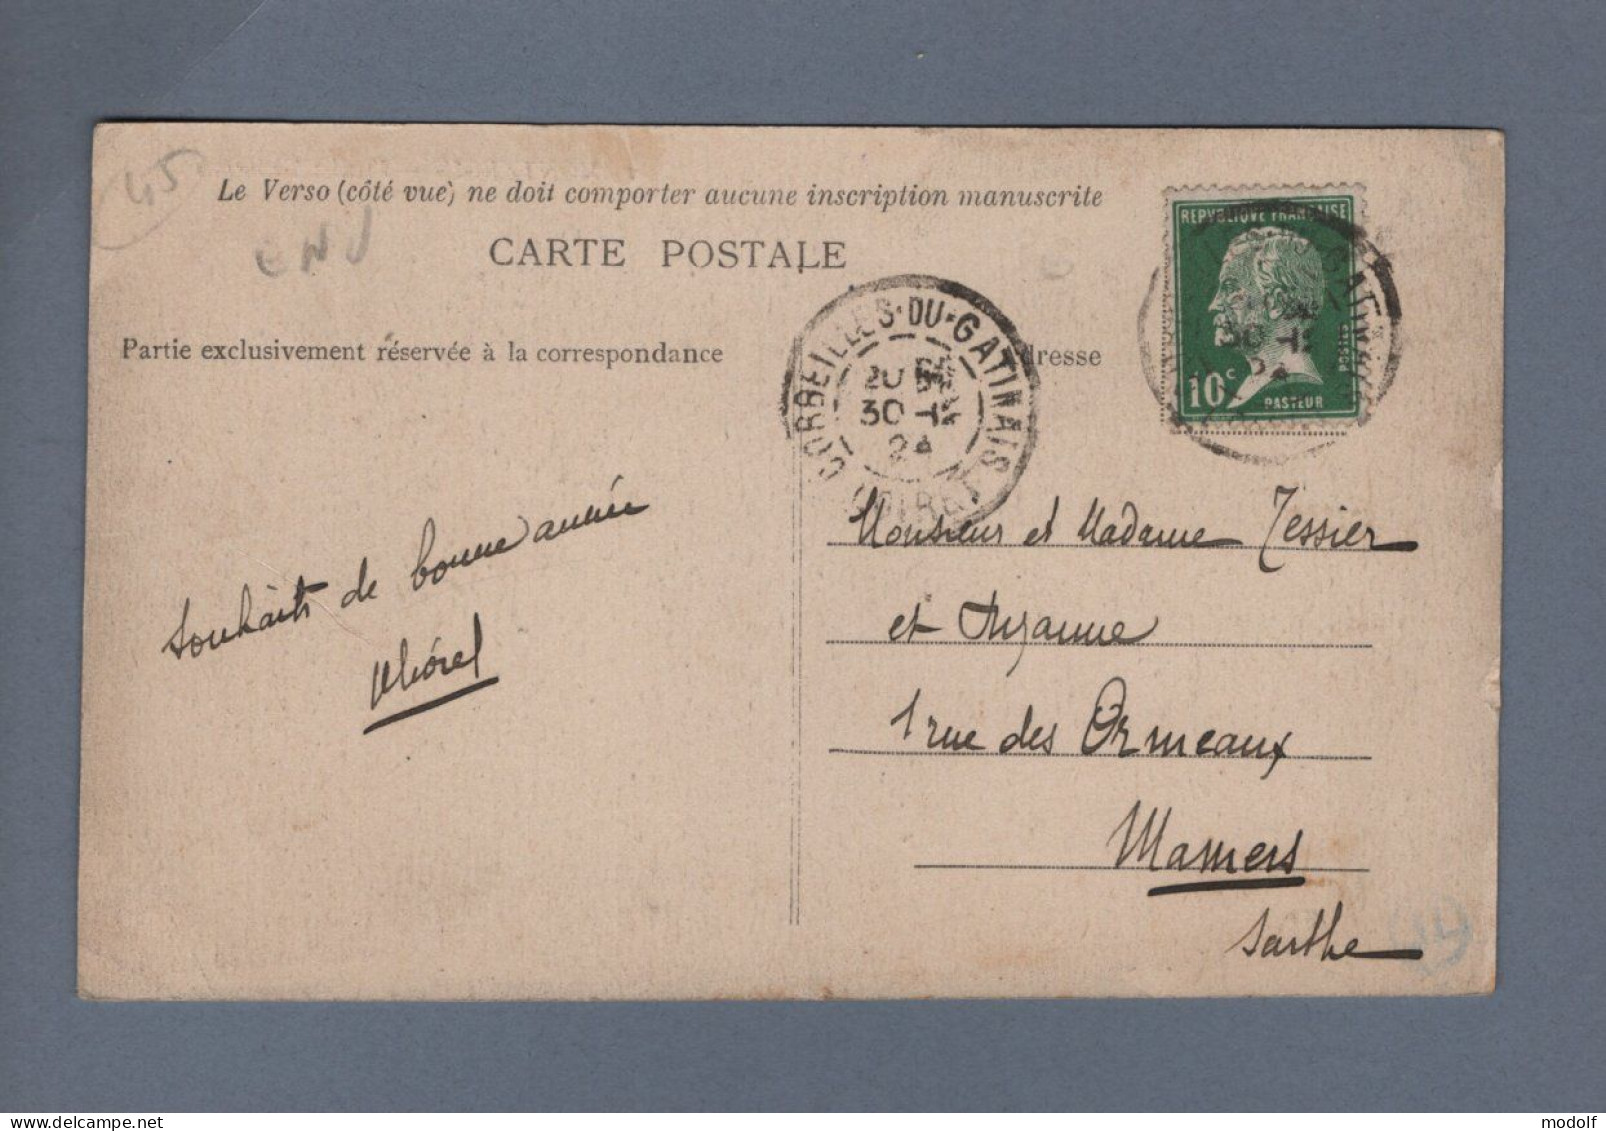 45
Le Verso (côté vue) ne doit comporter aucune inscription manuscrite
CARTE POSTALE
Partie exclusivement réservée à la correspondance
dresse
REPVBLIQVE FRANÇAISE
10c
POSTES
PASTEUR
CORBEILLES-DU-GATINAIS
30
24
LOIRET
souhaits de bonne année
Monsieur et Madame Tessier
et Suzanne
1 rue des Ormeaux
Mamers
Sarthe
14
www.delcampe.net
modolf